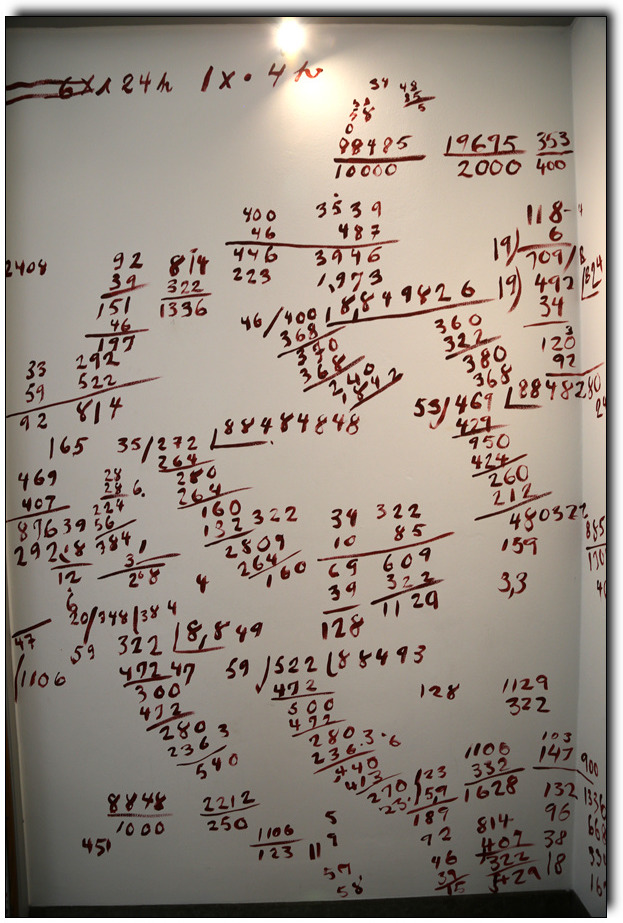 6x1 24h 1x · 4h
34 48
58 35
0 5
88485 19695 353
10000 2000 400
400 3539 118-
46 487 19) 6
446 3946 709
223 1,973 19) 492
2408 92 814 34
39 322 120
151 1336 92
46
197
46/400 8,849826 360
368 322
370 380
368 368
240
1842
33 292
59 522
92 814
53/469 88 48280
429
950
424
260
212
480322
159
3,3
165 35/272 88484848
264
280
264
160
132 322
2809
264
160
469 28
407 28 6.
87639 224
292 56
12 384
31
248
34 322
10 85
69 609
39 322
128 1129
20/348/384
47
1106
59 322 8,849
472 47
300
472
280
2363
540
59 522 88493
472
500
472
280
236.3.6
440
413
270
128 1129
322
1106 103
332 147
1628
123
59
189
132
96
38
18
92 814
46 407
39 322
900
8848 2212
1000 250
451
1106
123
5
9
11
59
58